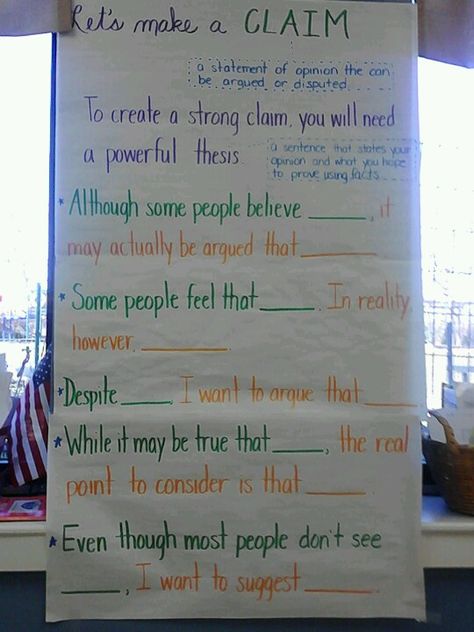 Let's make a CLAIM
a statement of opinion the can
be argued or disputed.
To create a strong claim, you will need
a powerful thesis.
a sentence that states your
opinion and what you hope
to prove using facts.
* Although some people believe ______, it
may actually be argued that ______
* Some people feel that ______. In reality,
however, ______.
* Despite ______, I want to argue that ____
* While it may be true that ______, the real
point to consider is that ______.
* Even though most people don't see
______, I want to suggest ______.